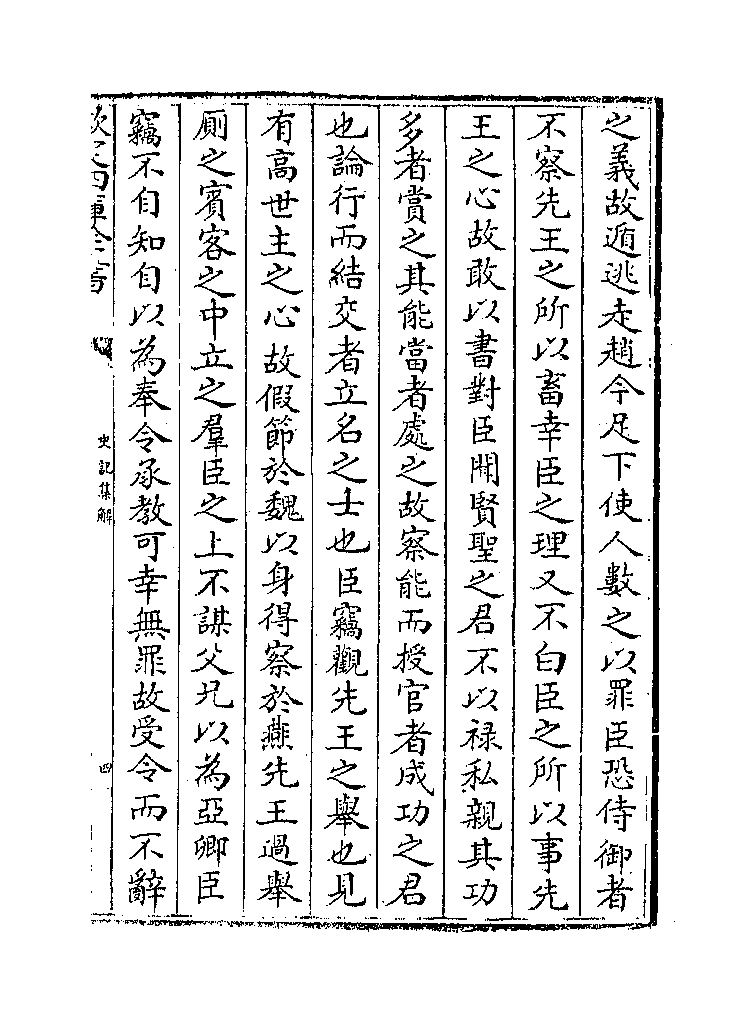 之義故遁逃走趙今足下使人數之以罪臣恐侍御者
不察先王之所以畜幸臣之理又不白臣之所以事先
王之心故敢以書對臣聞賢聖之君不以禄私親其功
多者賞之其能當者處之故察能而授官者成功之君
也論行而結交者立名之士也臣竊觀先王之舉也見
有高世主之心故假節於魏以身得察於燕先王過舉
厠之賓客之中立之羣臣之上不謀父兄以為亞卿臣
竊不自知自以為奉令承教可幸無罪故受令而不辭
欽定四庫全書
史記集解
四